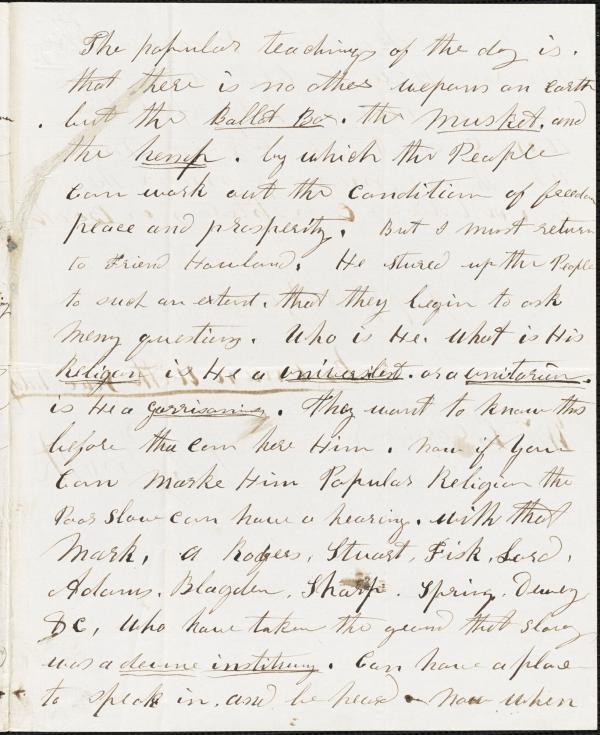 The popular teachings of the day is.
that there is no other wepans on earth
but the Ballot Box. the Musket. and
the hemp. by which the People
can work out the condition of freedom
peace and prosperity. But I must return
to Friend Howland. He stured up the People
to such an extent. that they begin to ask
meny questions. Who is He. What is His
Religion is He a universlest. or a unitarian.
is He a garrisoning. They want to know this
before tha can here Him. now if you
can Marke Him Popular Religion the
Poor Slave can have a hearing. with that
Mark, a Rogers, Stuart, Fisk, Lord,
Adams. Blagden, Sharp. Spring. Dewey
&C, Who have taken the ground that slavry
was a devine instituny. Can have a place
to speak in. and be heard. now when